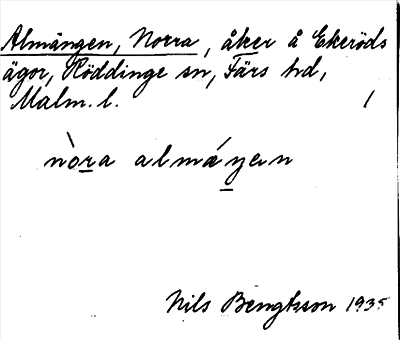 Almången, Norra, åker å Ekeröds
ägor, Röddinge sn, Färs hd,
Malm. l. /
nòra almáŋen
Nils Bengtsson 1935